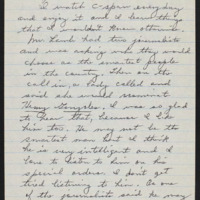 I watch C-span everyday
and enjoy it and I learn things
that I wouldn't know otherwise.
Mr. Lamb had two journalists
and was asking who they would
choose as the smartest people
in the country. Then on the
call in, a lady called and
said, she would nominate
Henry Gonzalez, I was so glad
to hear that, because I like
him too. He may not be the
smartest man but I think
he is very intelligent and I
love to listen to him on his
special orders. I don't get
tired listening to him. As one
of the journalist said he may